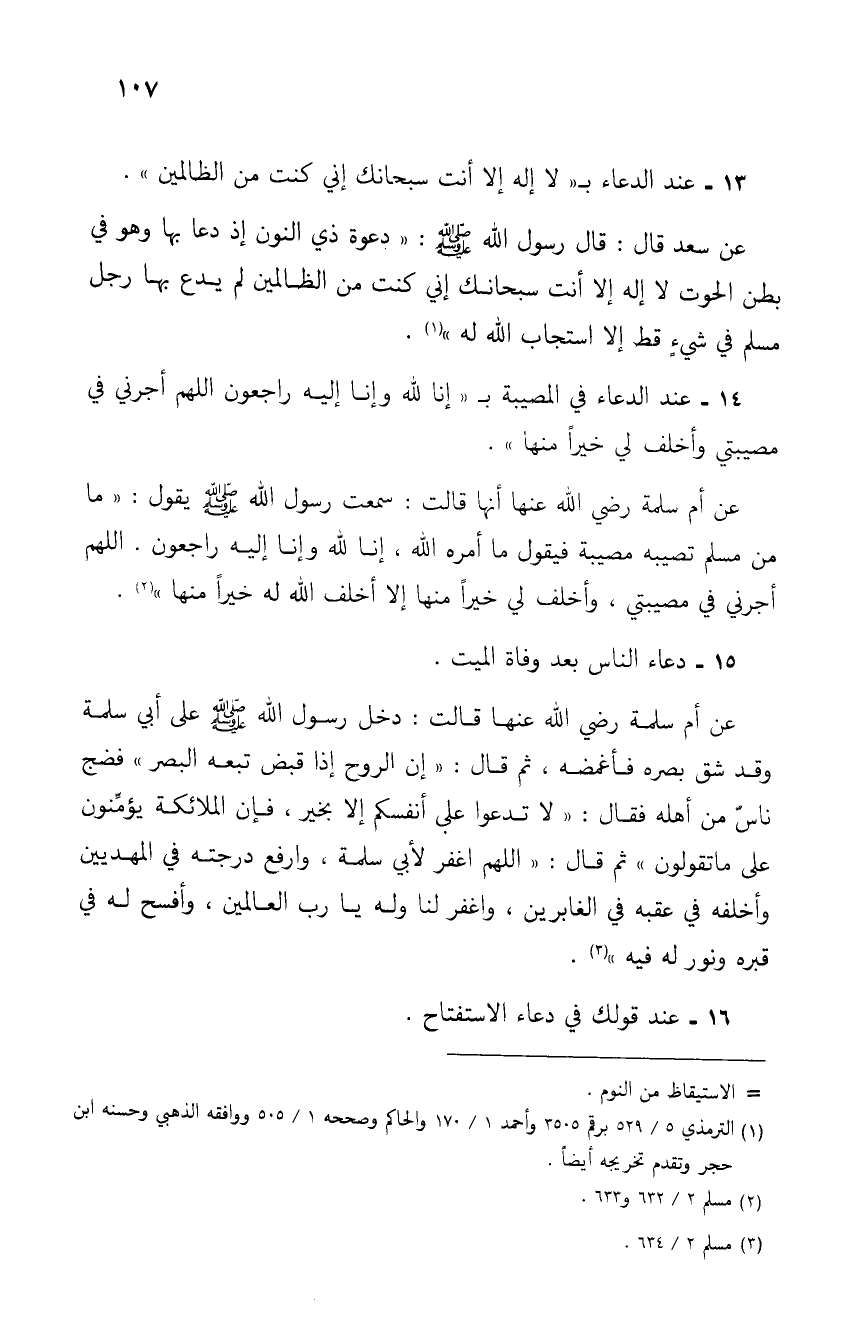 ١٠٧
١٣ - عند الدعاء بـ« لا إله إلا أنت سبحانك إني كنت من الظالمين » .
عن سعد قال : قال رسول الله ﷺ : « دعوة ذي النون إذ دعا بها وهو في
بطن الحوت لا إله إلا أنت سبحانك إني كنت من الظالمين لم يدع بها رجل
مسلم في شيءٍ قط إلا استجاب الله له »(١) .
١٤ - عند الدعاء في المصيبة بـ « إنا لله وإنا إليه راجعون اللهم أجرني في
مصيبتي وأخلف لي خيراً منها » .
عن أم سلمة رضي الله عنها أنها قالت : سمعت رسول الله ﷺ يقول : « ما
من مسلم تصيبه مصيبة فيقول ما أمره الله ، إنا لله وإنا إليه راجعون . اللهم
أجرني في مصيبتي ، وأخلف لي خيراً منها إلا أخلف الله له خيراً منها »(٢) .
١٥ - دعاء الناس بعد وفاة الميت .
عن أم سلمة رضي الله عنها قالت : دخل رسول الله ﷺ على أبي سلمة
وقد شق بصره فأغمضه ، ثم قال : « إن الروح إذا قبض تبعه البصر » فضج
ناسٌ من أهله فقال : « لا تدعوا على أنفسكم إلا بخير ، فإن الملائكة يؤمِّنون
على ماتقولون » ثم قال : « اللهم اغفر لأبي سلمة ، وارفع درجته في المهديين
وأخلفه في عقبه في الغابرين ، واغفر لنا وله يا رب العالمين ، وأفسح له في
قبره ونور له فيه »(٣) .
١٦ - عند قولك في دعاء الاستفتاح .
= الاستيقاظ من النوم .
(١) الترمذي ٥ / ٥٢٩ برقم ٣٥٠٥ وأحمد ١ / ١٧٠ والحاكم وصححه ١ / ٥٠٥ ووافقه الذهبي وحسنه ابن
حجر وتقدم تخريجه أيضاً .
(٢) مسلم ٢ / ٦٣٢ و٦٣٣ .
(٣) مسلم ٢ / ٦٣٤ .